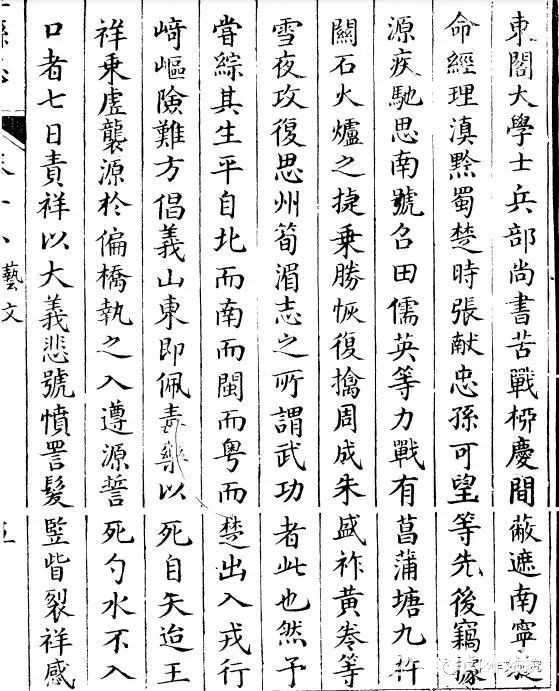 東閣大學士兵部尚書苦戰柳慶間蔽遮南寧旋
命經理滇黔蜀楚時張献忠孫可望等先後竊據
源疾馳思南號召田儒英等力戰有菖蒲塘九杵
關石火爐之捷乗勝恢復擒周成朱盛祚黄巻等
雪夜攻復思州筍湄志之所謂武功者此也然予
嘗綜其生平自北而南而閩而粤而楚出入戎行
﨑嶇險難方倡義山東即佩毒藥以死自矢迨王
祥乗虗襲源於偏橋執之入遵源誓死勺水不入
口者七日責祥以大義悲號憤詈髪竪眥裂祥感
藝文